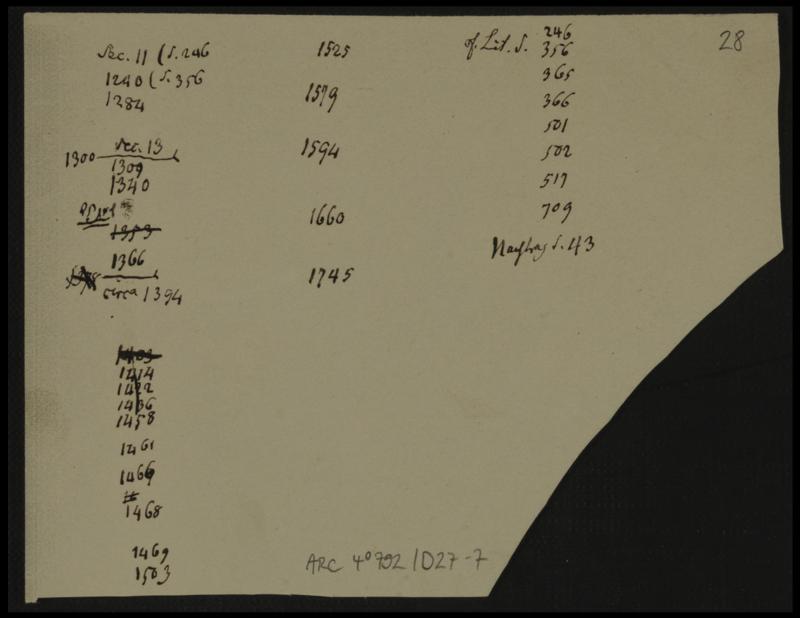 28
Sec. 11 (S. 246
1240 (S. 356
1284
Sec. 13
1300
1309
1340
1353
1366
circa 1394
1403
1414
1422
1436
1458
1461
1466
1468
1469
1503
1525
1579
1594
1660
1745
of. Lit. S. 246
356
365
366
501
502
517
709
Nachtrag S. 43
ARC 4° 792/D27-7